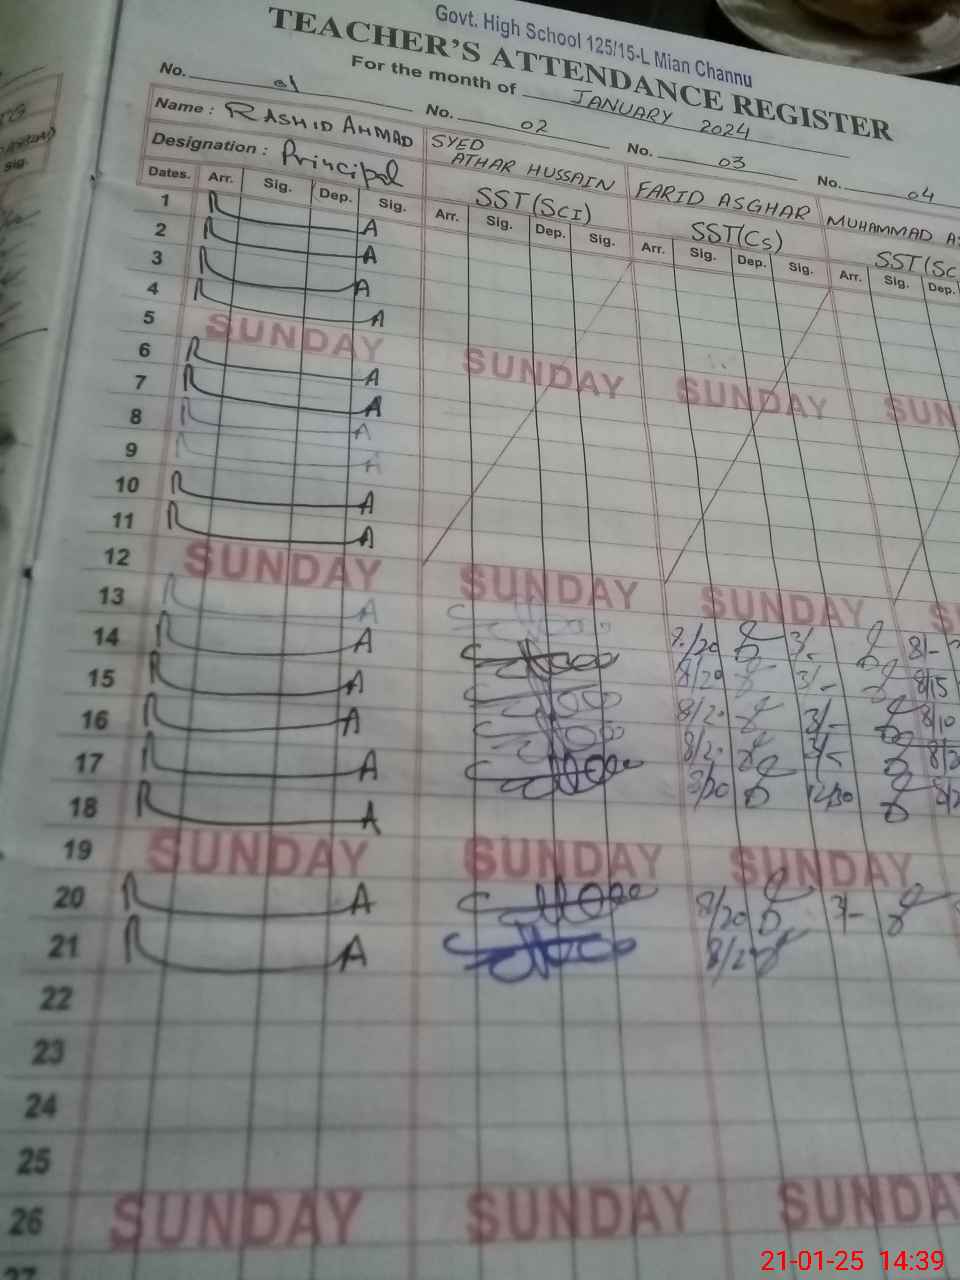 Govt. High School 125/15-L Mian Channu
TEACHER'S ATTENDANCE REGISTER
For the month of JANUARY 2024
No. 01 No. 02 No. 03 No. 04
Name : RASHID AHMAD SYED ATHAR HUSSAIN FARID ASGHAR MUHAMMAD
Designation : Principal SST(SCI) SST(CS) SST(SC
Dates. Arr. Sig. Dep. Sig. Arr. Sig. Dep. Sig. Arr. Sig. Dep. Sig. Arr. Sig. Dep.
1 R A
2 R A
3 R A
4 R A
5 SUNDAY SUNDAY SUNDAY SUN
6 R A
7 R A
8 R A
9 R A
10 R A
11 R A
12 SUNDAY SUNDAY SUNDAY S
13 R A 8/20 3/- 8/-
14 R A 8/20 3/- 8/15
15 R A 8/20 3/- 8/10
16 R A 8/20 3/-
17 R A 8/20 12/30
18 R A
19 SUNDAY SUNDAY SUNDAY
20 R A 8/20 3/-
21 R A
22
23
24
25
26 SUNDAY SUNDAY SUNDA
27
sig.
21-01-25 14:39